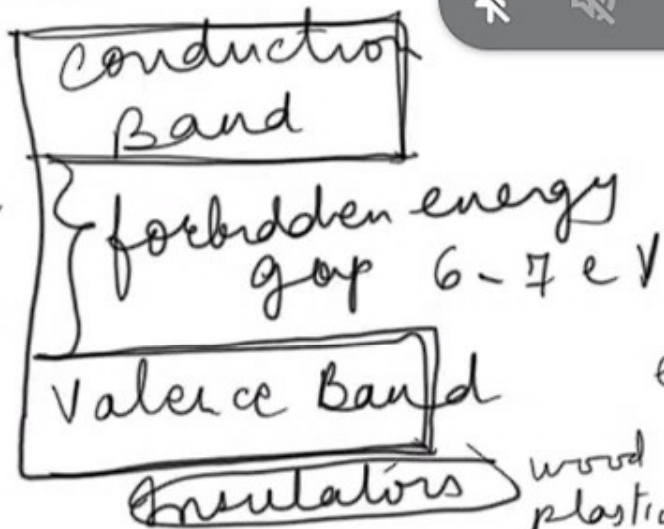 Conduction
Band
forbidden energy
gap 6-7 eV
Valence Band
Insulators
wood
plastic